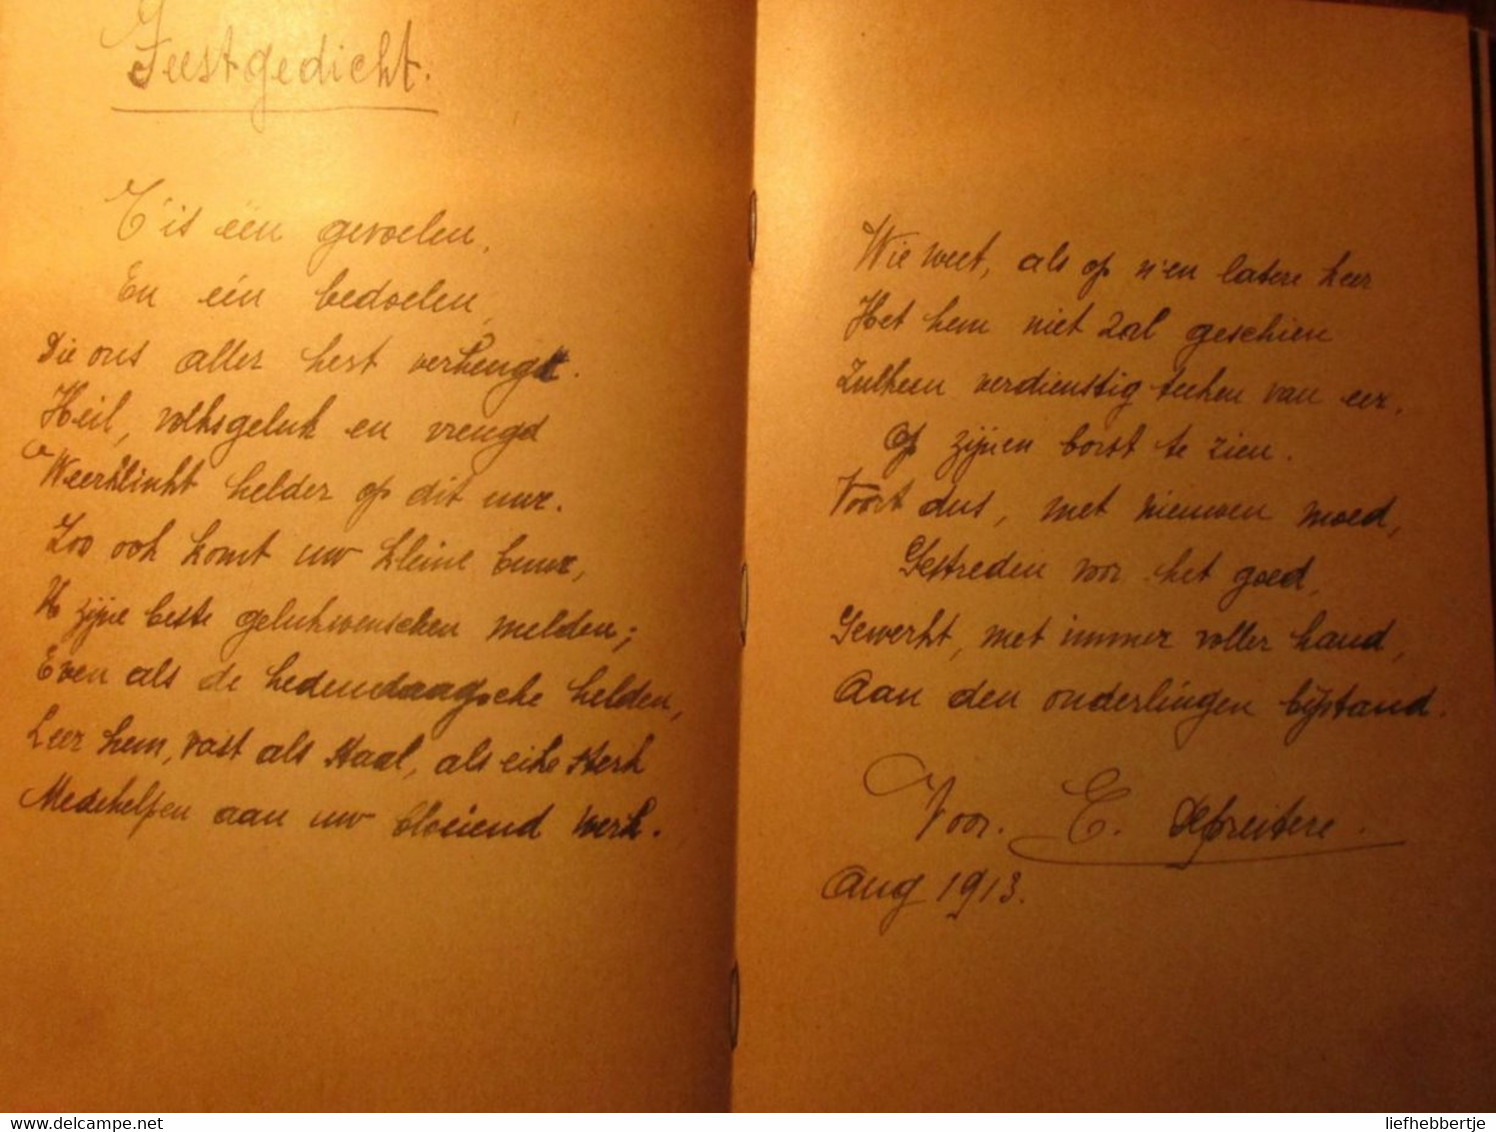 Feestgedicht.
T'is één gevoelen,
En één bedoelen,
Die ons aller hert verheugt.
Heil, volksgeluk en vreugd
Weerklinkt helder op dit uur.
Zoo ook komt uw kleine buur,
U zijne beste gelukwenschen melden;
Even als de hedendaagsche helden,
Leer hem, vast als staal, als eike sterk
Medehelpen aan uw bloeiend werk.
Wie weet, als op n'en latere keer
Het hem niet zal geschien
Zulkeen verdienstig teeken van eer,
Op zijnen borst te zien.
Voort dus, met nieuwen moed,
Gestreden voor het goed,
Gewerkt, met immer voller hand,
Aan den onderlingen bijstand.
Voor. C.
Aug 1913.
delcampe.net
liefhebbertje